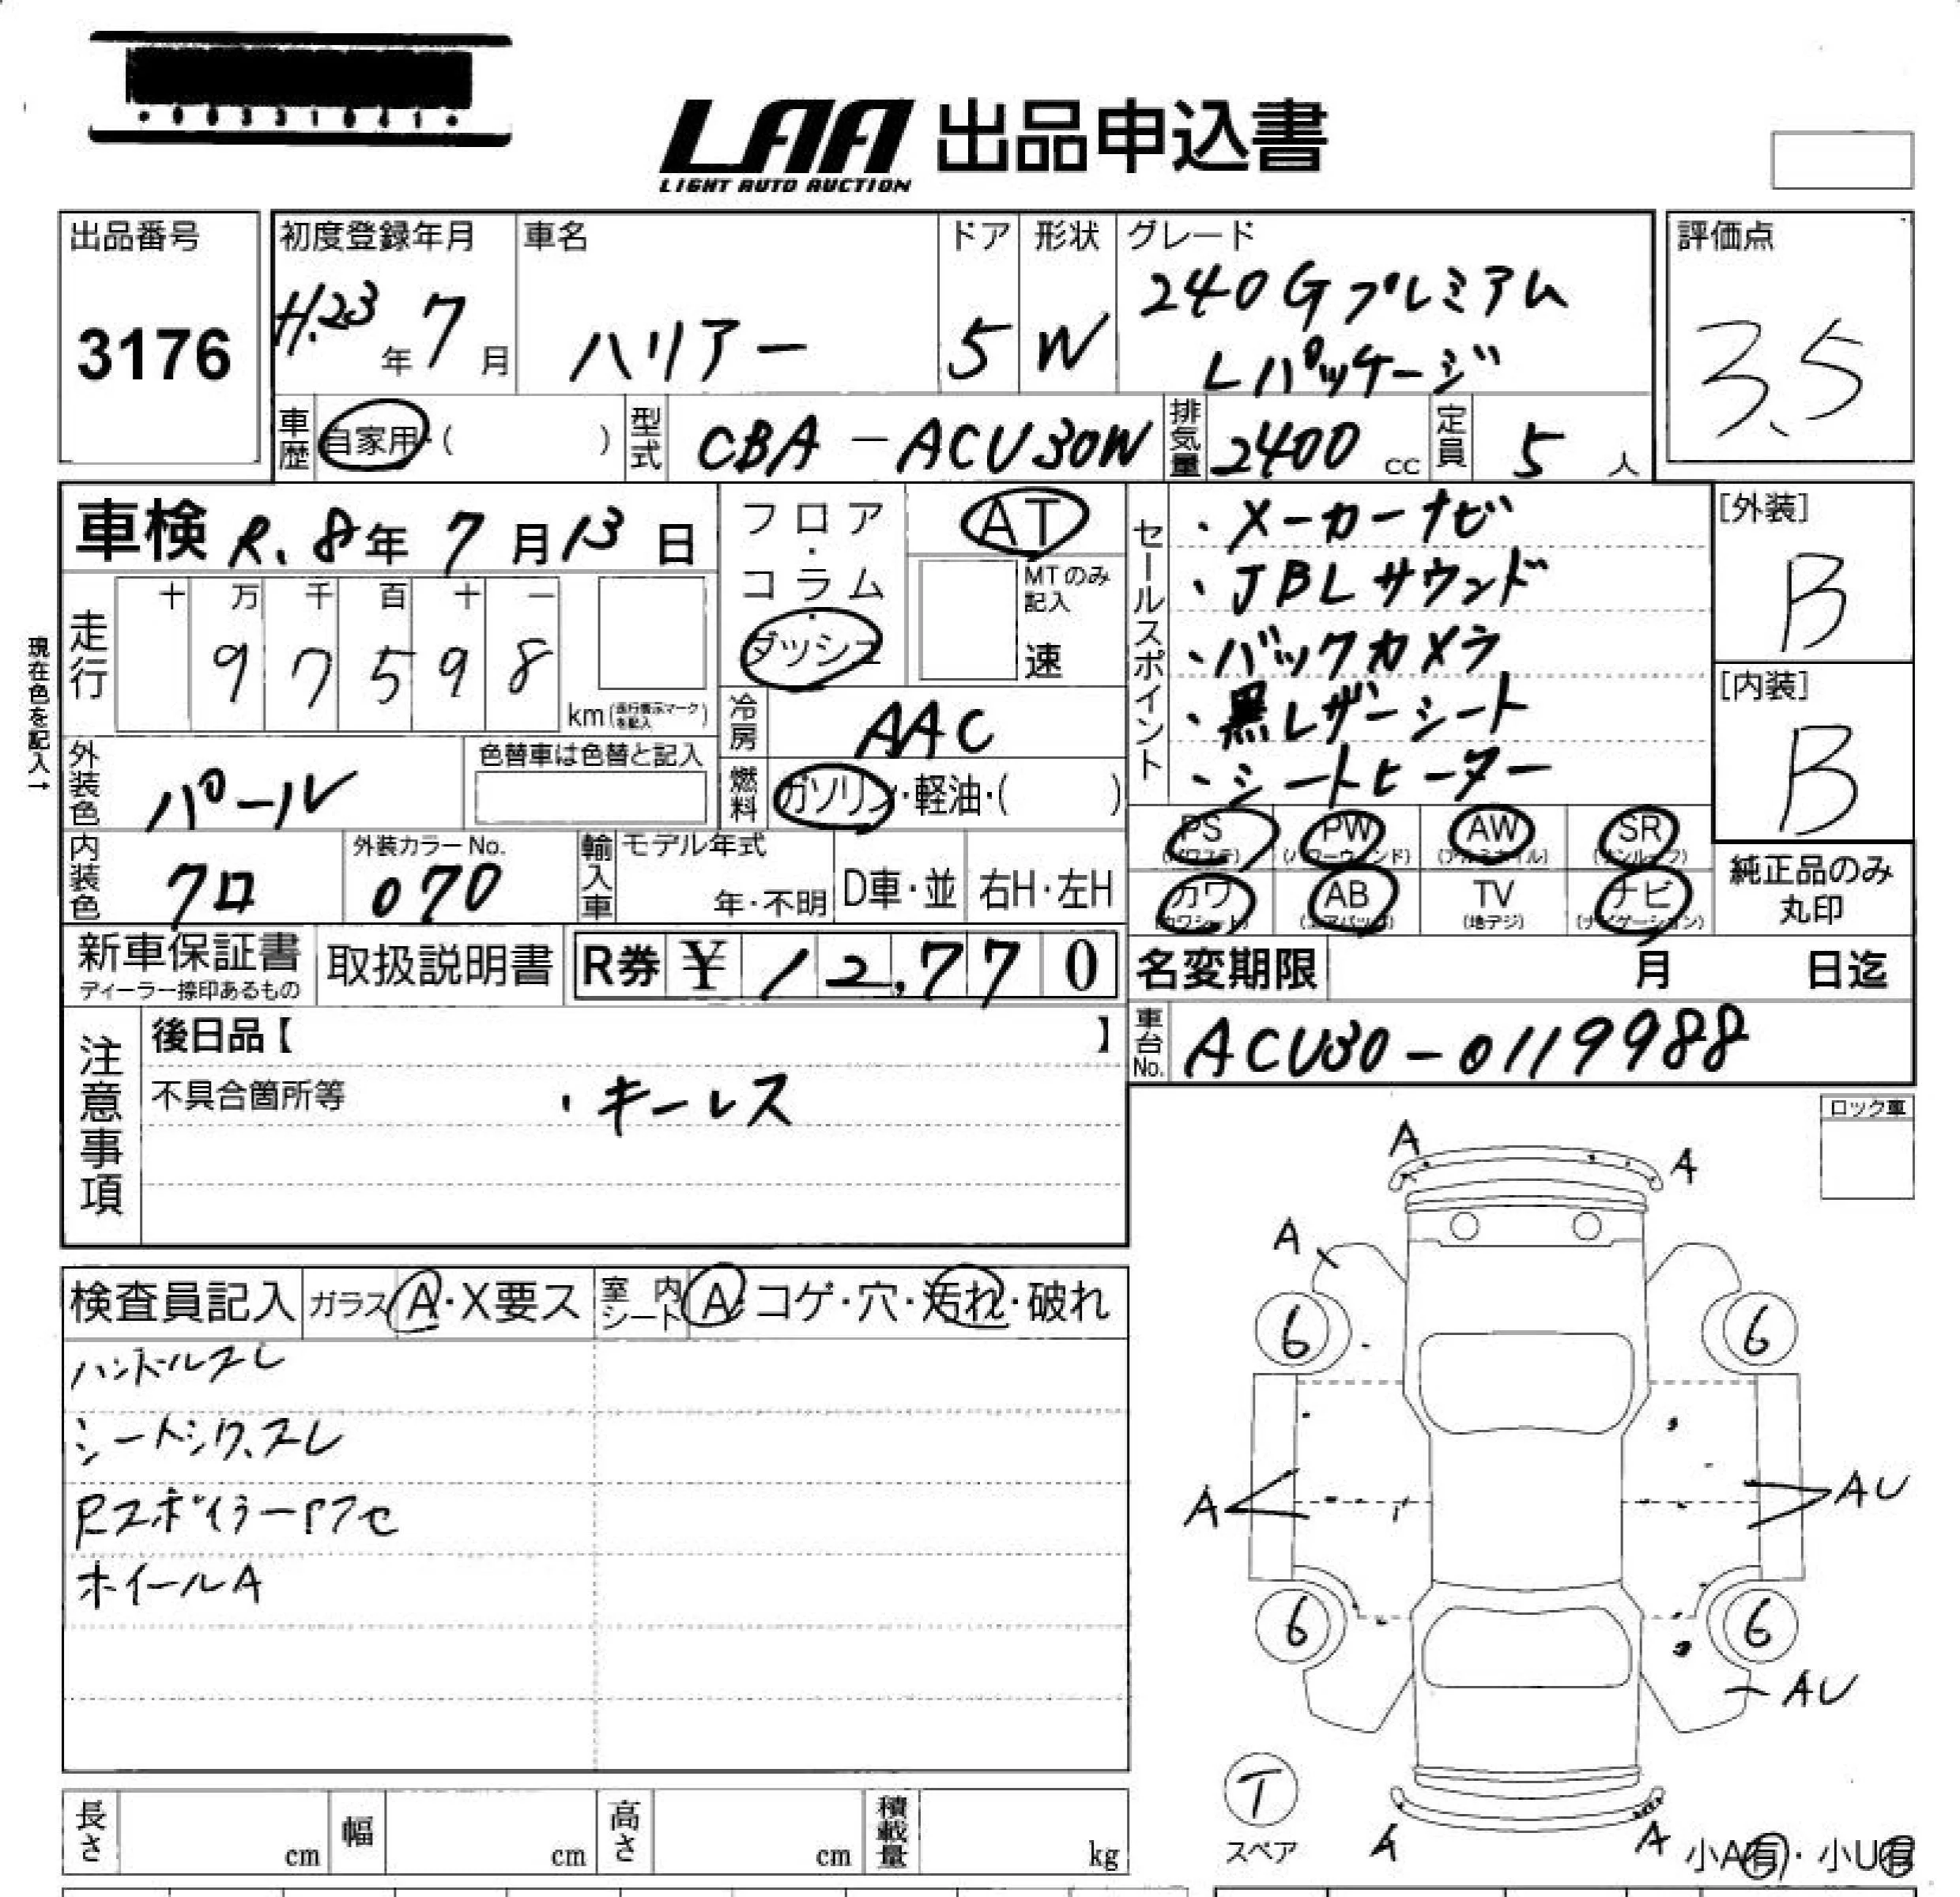 LAA 出品申込書
LIGHT AUTO AUCTION
出品番号
3176
初度登録年月
H.23年7月
車名
ハリアー
ドア
5
形状
W
グレード
240Gプレミアム
Lパッケージ
評価点
3.5
車歴
自家用・( )
型式
CBA-ACU30W
排気量
2400 cc
定員
5 人
車検 R.8年7月13日
現在色を記入→
走行
十 万 千 百 十 一
9 7 5 9 8
km(走行表示マークを記入)
フロア・コラム・ダッシュ
AT
MTのみ記入
速
冷房
AAC
燃料
ガソリン・軽油・( )
外装色
パール
色替車は色替と記入
内装色
クロ
外装カラーNo.
070
輸入車
モデル年式
年・不明
D車・並
右H・左H
セールスポイント
・メーカーナビ
・JBLサウンド
・バックカメラ
・黒レザーシート
・シートヒーター
[外装]
B
[内装]
B
PS (パワステ)
PW (パワーウィンド)
AW (アルミホイル)
SR (サンルーフ)
カワ (カワシート)
AB (エアバッグ)
TV (地デジ)
ナビ (ナビゲーション)
純正品のみ
丸印
新車保証書
ディーラー捺印あるもの
取扱説明書
R券 ¥ 12,770
名変期限 月 日迄
車台No.
ACU30-0119988
注意事項
後日品【 】
不具合箇所等
・キーレス
ロック車
検査員記入
ガラス A・X要ス
室内シート A・コゲ・穴・汚れ・破れ
ハンドルスレ
シートシワ、スレ
Rスポイラーアセ
ホイールA
A
A
A
6
6
A
AU
6
6
AU
T
スペア
A
A
小A有・小U有
長さ cm
幅 cm
高さ cm
積載量 kg